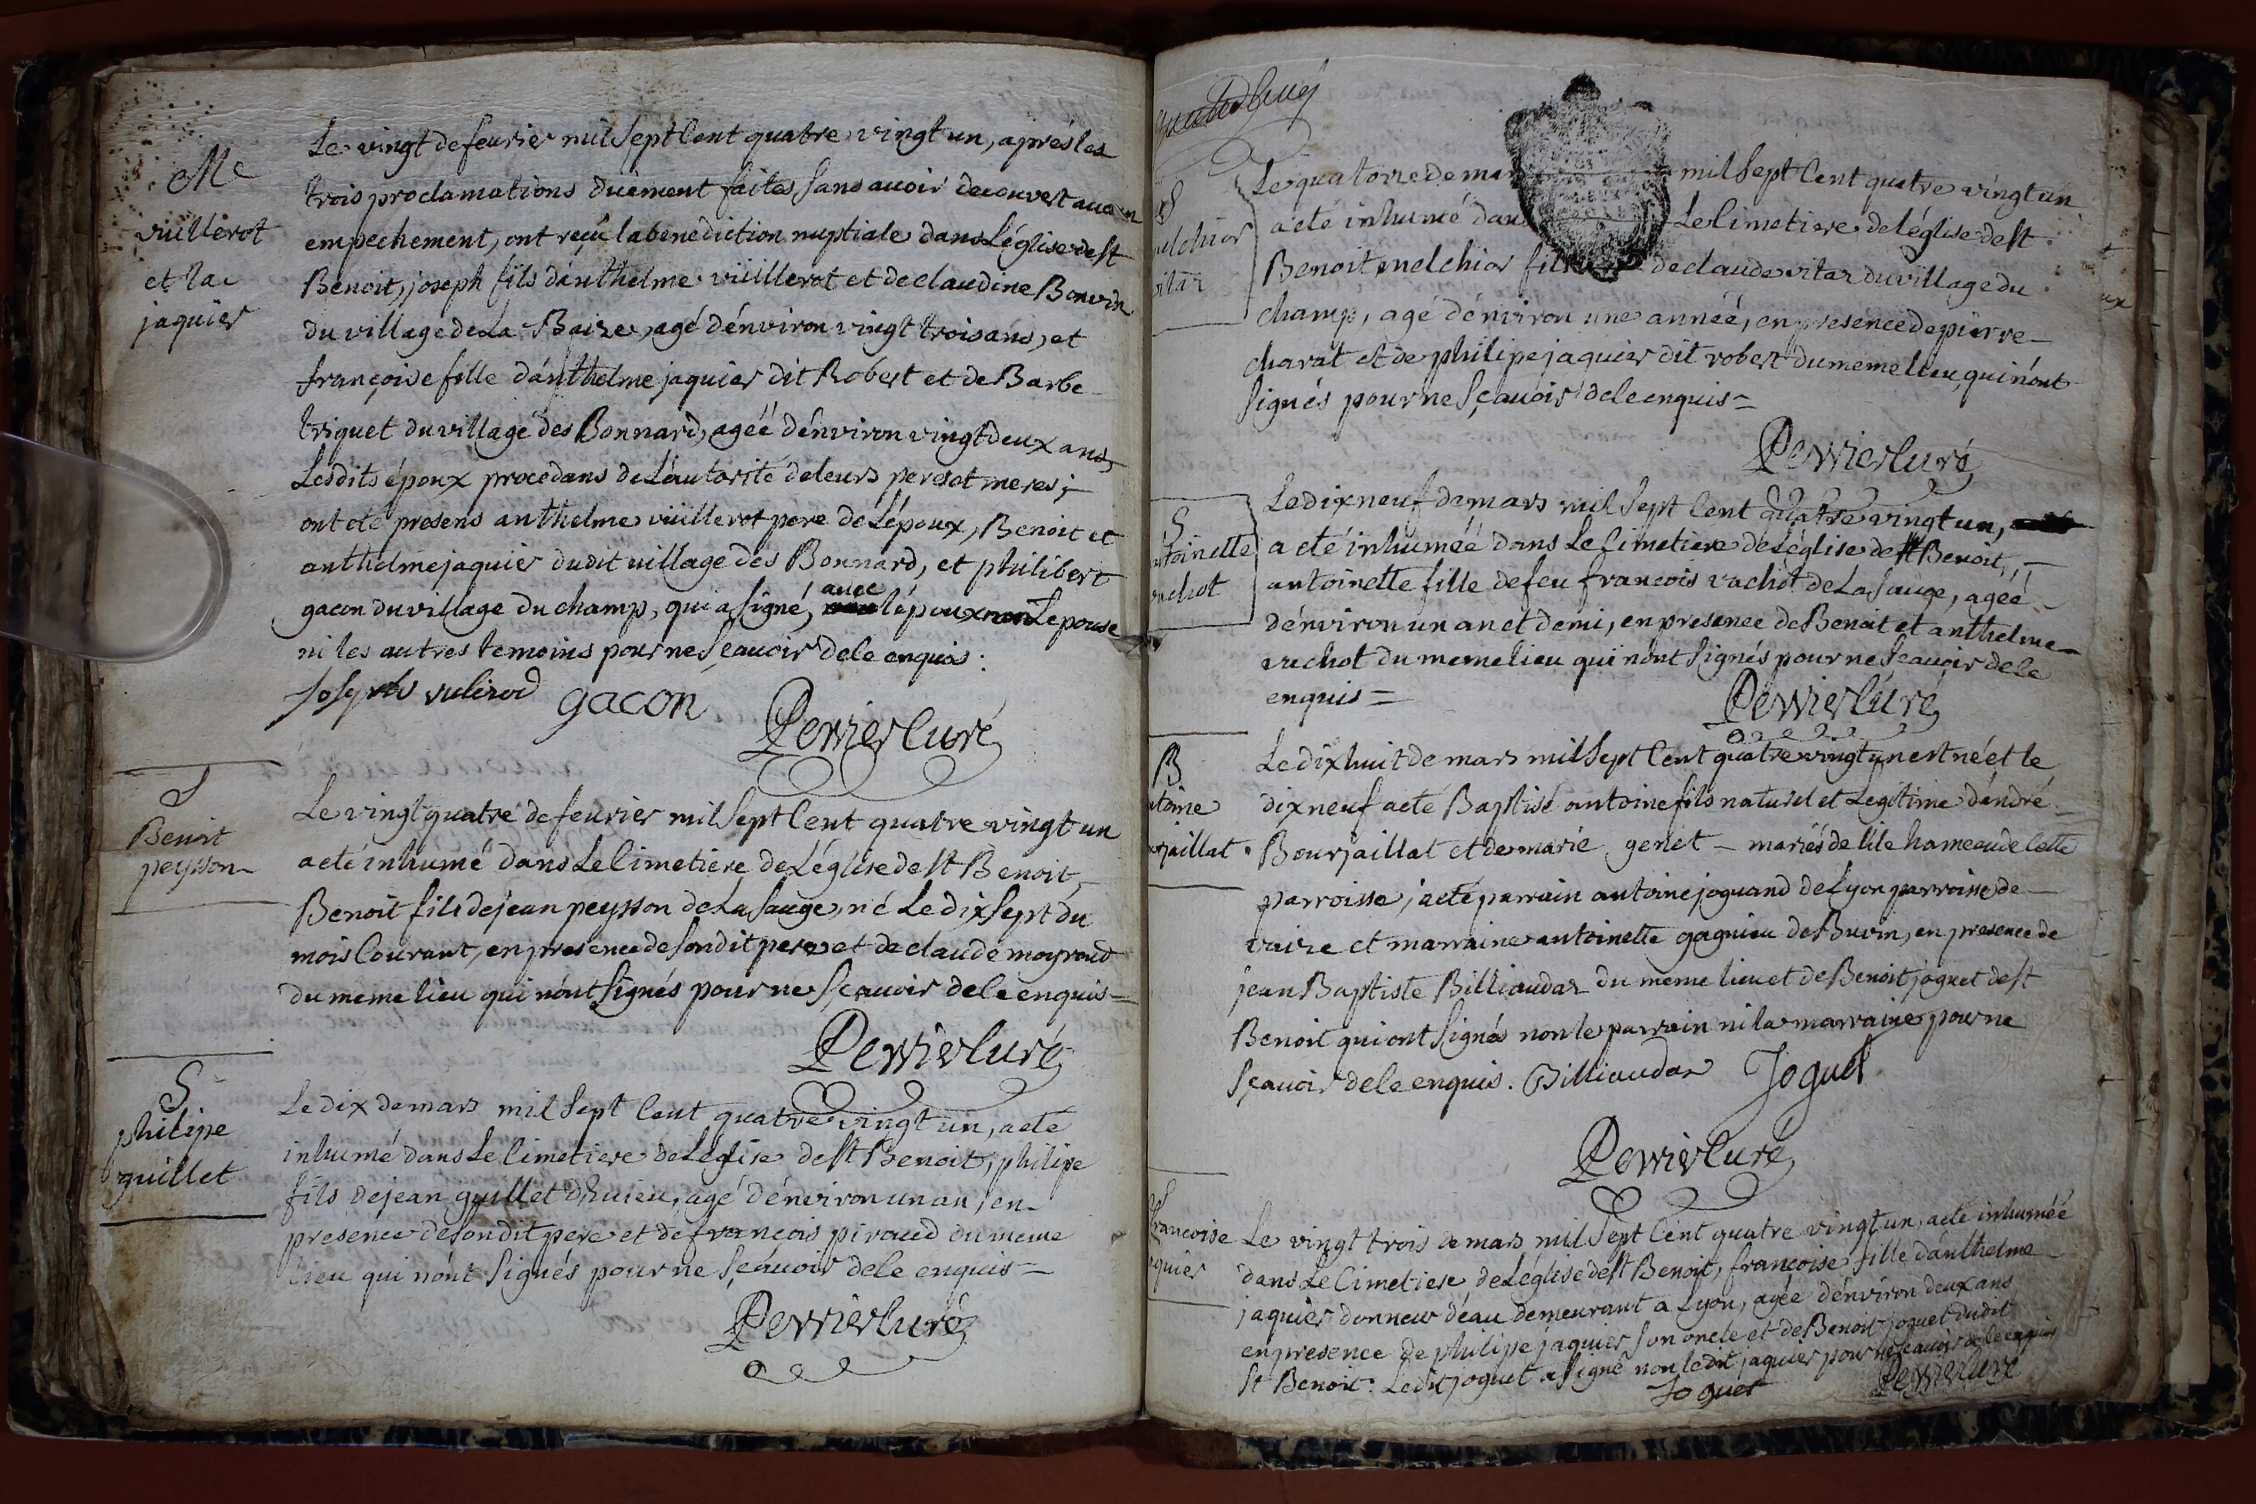 Me
vuillerot
et la
jaquier
Le vingt de feurier mil Sept Cent quatre vingt un, aprés les
trois proclamations duëment faites, sans auoir decouvert aucun
empechement, ont reçu la benediction nuptiale dans L'église de st
Benoit, joseph fils d'anthelme vüillerot et de claudine Bonvin
du village de La Baize, agé d'énviron vingt trois ans, et
françoise fille d'anthelme jaquier dit Robert et de Barbe
triquet du village des Bonnard, ageë d'énviron vingt deux ans,
Lesdits époux procedans de L'autorité de leurs peres et meres;
ont eté presens anthelme vüillerot pere de L'époux, Benoit et
anthelme jaquier dudit uillage des Bonnard, et philibert
gacon du village du champ, qui a signé, auec l'époux non L'epouse
ni les autres temoins pour ne Sçauoir de le enquis:
Joseph vulirod gacon Perrier Curé
S
Benoit
peysson
Le vingt quatre de feurier mil Sept Cent quatre vingt un
a eté inhumé dans Le Cimetiere de L'église de st Benoit,
Benoit fils de jean peysson de La sauge, né Le dix sept du
mois Courant, en presence de son dit pere et de claude moyroud
du meme lieu qui n'ont signés pour ne Sçauoir de le enquis =
Perrier Curé
S
philipe
guillet
Le dix de mars mil Sept Cent quatre vingt un, a eté
inhumé dans Le Cimetiere de L'église de st Benoit, philipe
fils de jean guillet d'huieu, agé d'énviron un an, en
presence de son dit pere et de françois piraud du meme
lieu qui n'ont signés pour ne Sçauoir de le enquis =
Perrier Curé
S
elchior
vitaz
Le quatorze de mars mil Sept Cent quatre vingt un
a eté inhumé dans Le Cimetiere de L'église de st
Benoit melchior fils de claude vitaz du village du
champ, agé d'énviron une annéé, en presence de pierre
charat et de philipe jaquier dit robert du meme lieu, qui n'ont
signés pour ne Sçauoir de le enquis =
Perrier Curé
S
ntoinette
vachot
Le dix neuf de mars mil Sept Cent quatre vingt un,
a eté inhuméé dans Le Cimetiere de L'église de st Benoit,
antoinette fille de feu francois vachot de La sauge, agéé
d'énviron un an et demi, en presence de Benoit et anthelme
vachot du meme lieu qui n'ont signés pour ne Sçauoir de le
enquis =
Perrier Curé
B
ntoine
urjaillat
Le dix huit de mars mil Sept Cent quatre vingt un est né et le
dix neuf a eté Baptisé antoine fils naturel et Legitime d'andré
Bourjaillat et de marie genet mariés de l'ile hameau de Cette
parroisse; a eté parrain antoine joguand de Lyon parroisse de
vaize et marraine antoinette gagnieu de Buvin, en presence de
jean Baptiste Billiaudaz du meme lieu et de Benoit joguet de st
Benoit qui ont signés non le parrain ni la marraine pour ne
Sçauoir de le enquis. Billiaudaz Joguet
Perrier Curé
S
francoise
aquier
Le vingt trois de mars mil Sept Cent quatre vingt un, a eté inhuméé
dans Le Cimetiere de L'église de st Benoit, françoise fille d'anthelme
jaquier donneur d'éau demeurant a Lyon, agée d'énviron deux ans
en presence de philipe jaquier son oncle et de Benoit joguet dudit
st Benoit: Ledit joguet a signé non ledit jaquier pour ne Sçauoir de le enquis
Joguet Perrier Curé